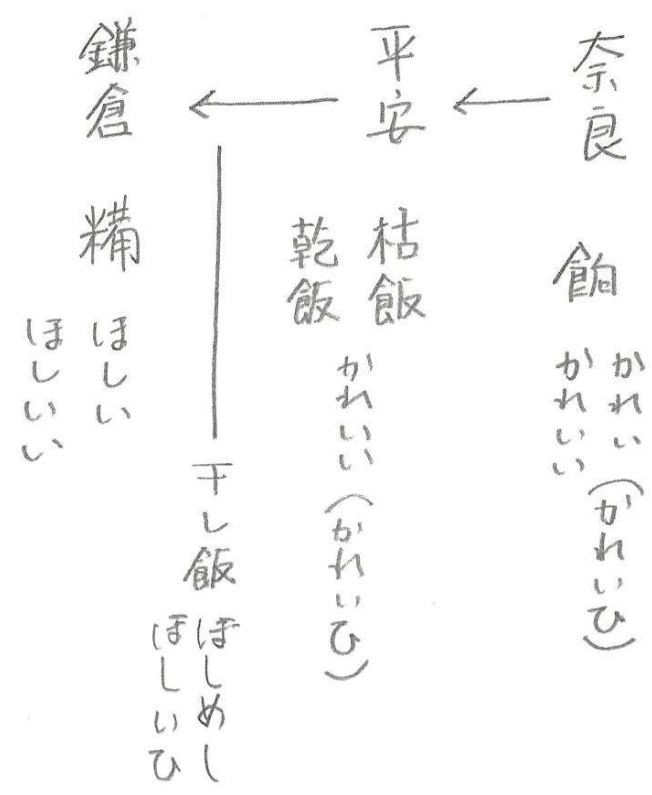 奈良
餉
かれい(かれいひ)
かれいい
平安
枯飯
乾飯
かれいい(かれいひ)
干し飯
ほしめし
ほしいひ
鎌倉
糒
ほしい
ほしいい